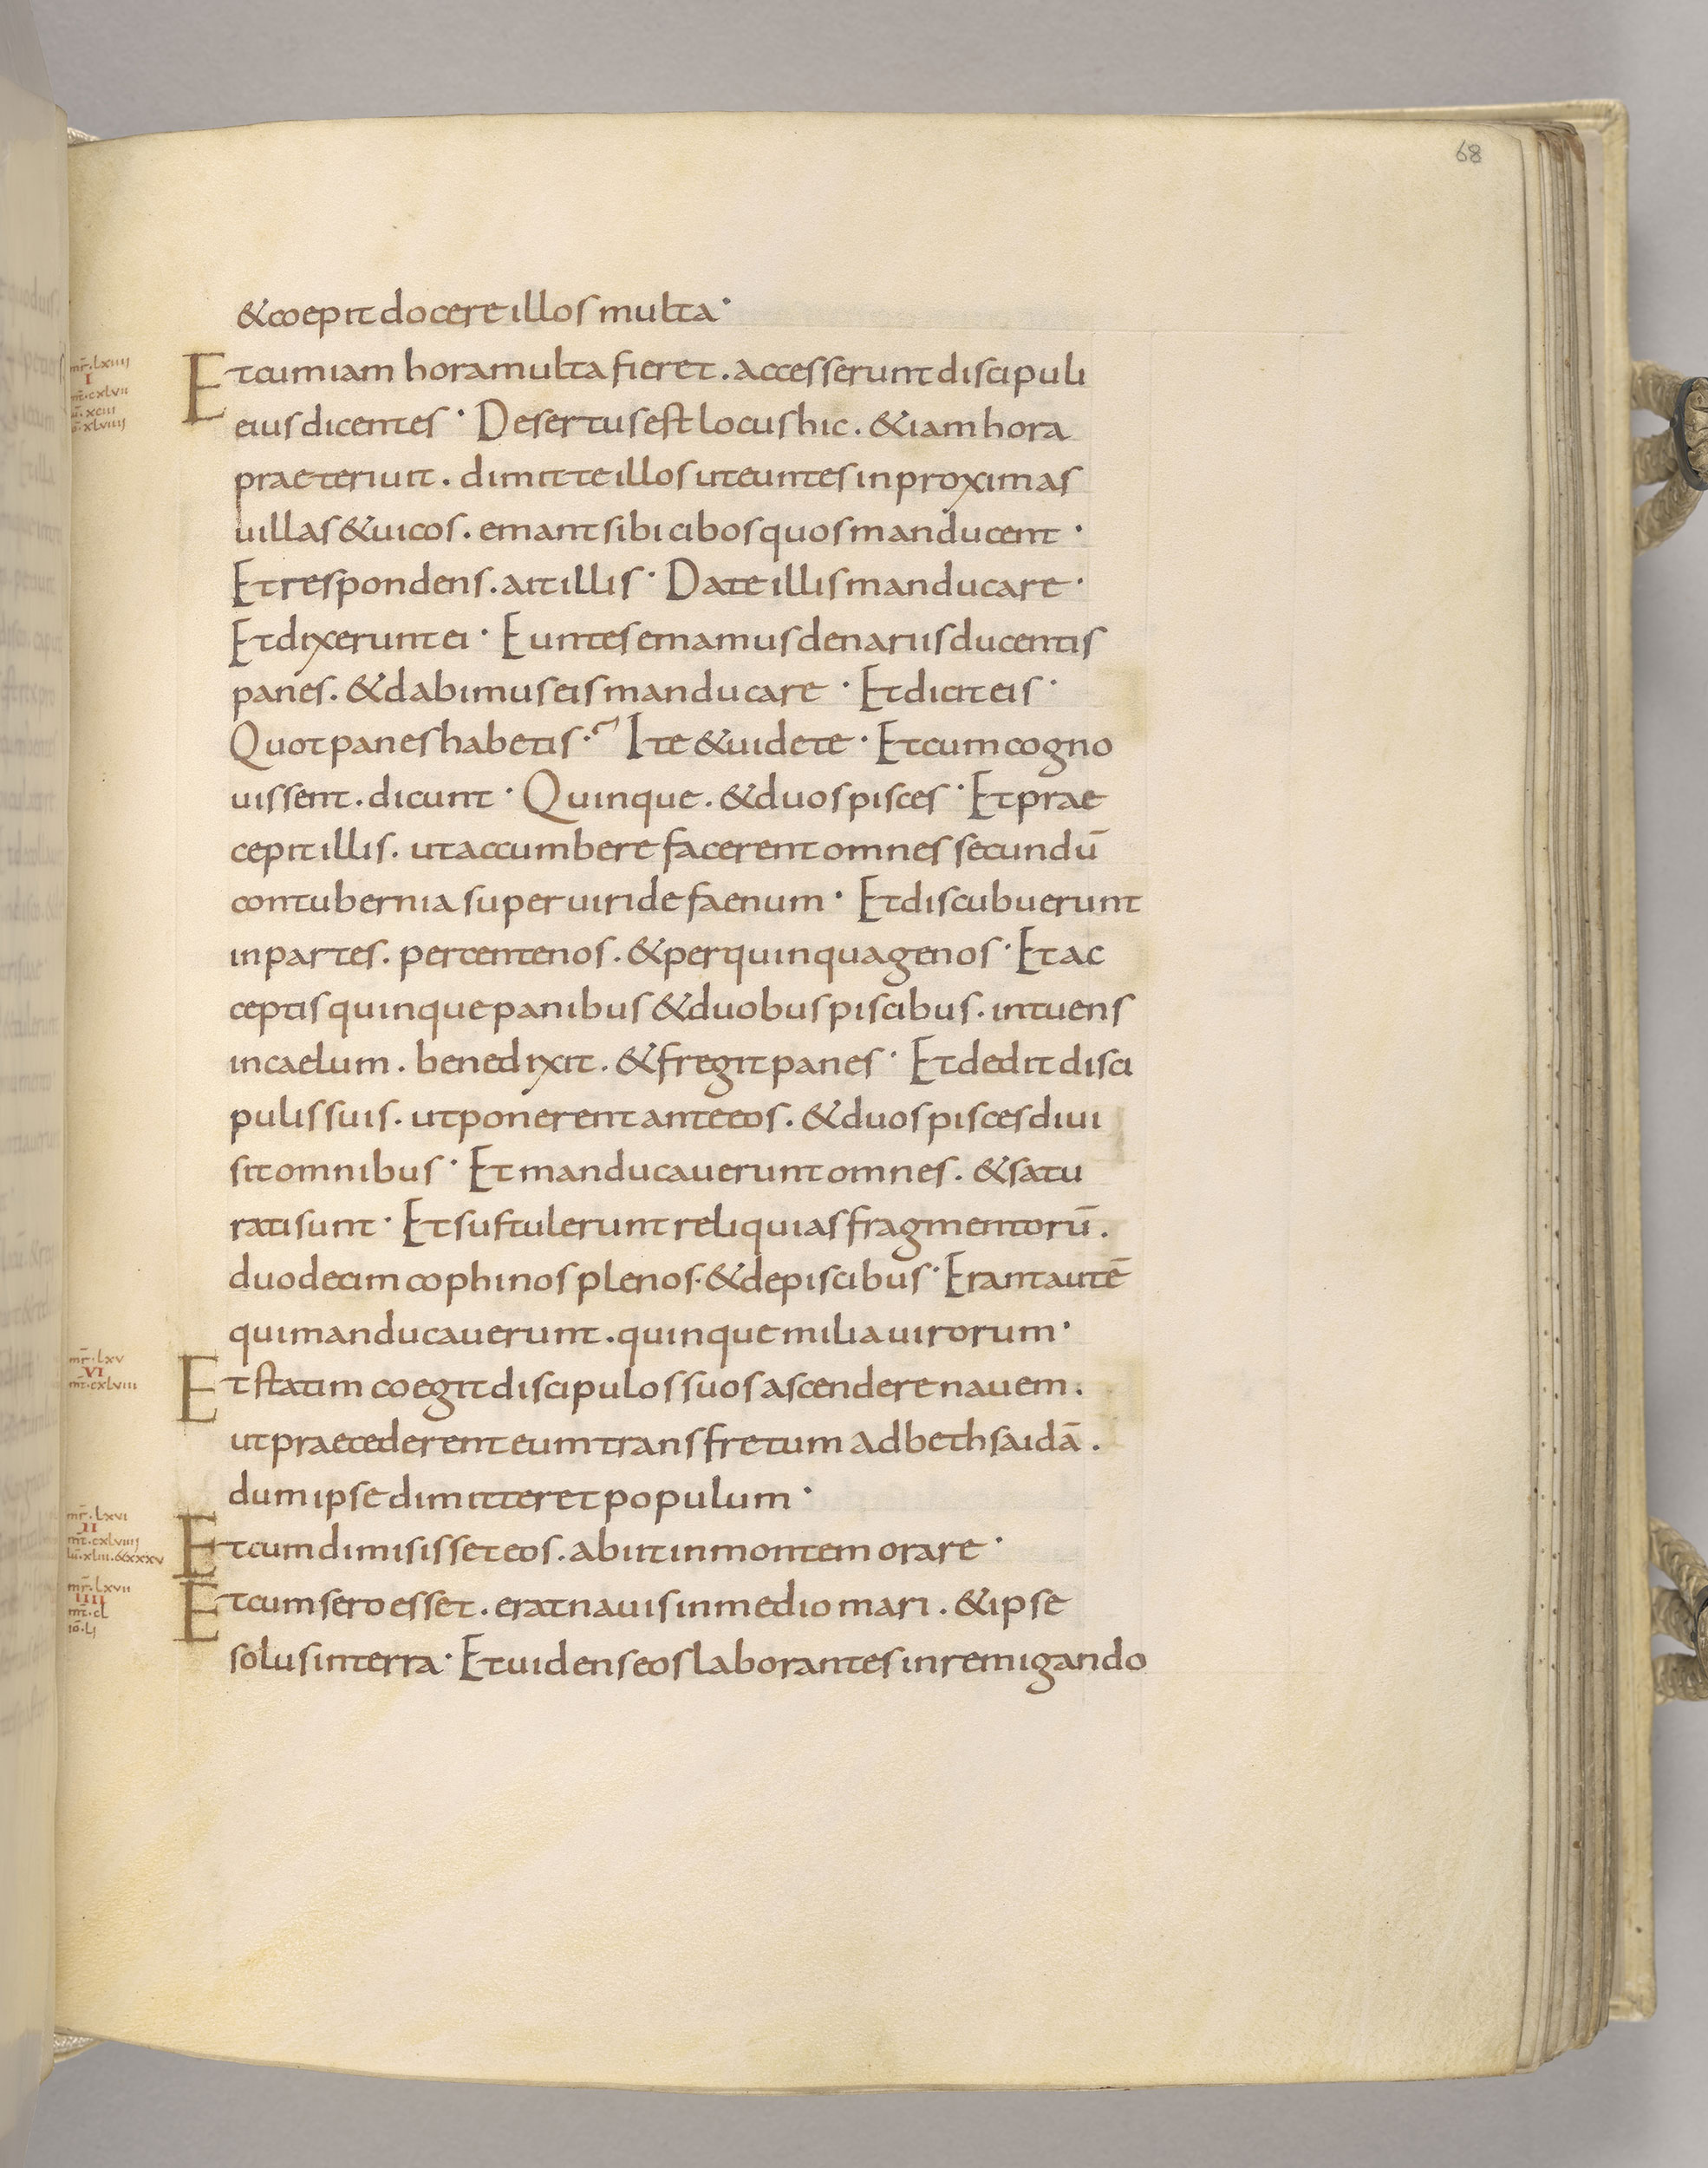 68
& coepit docere illos multa·
mr̄·lxiiii
I
mt̄·cxlvii
lū·xciii
iō·xlviiii
Et cum iam hora multa fieret. accesserunt discipuli
eius dicentes· Desertus est locus hic. & iam hora
praeteriuit. dimitte illos ut euntes in proximas
uillas & uicos. emant sibi cibos quos manducent·
Et respondens. ait illis· Date illis manducare·
Et dixerunt ei· Euntes emamus denariis ducentis
panes. & dabimus eis manducare· Et dicit eis·
Quot panes habetis·? Ite & uidete· Et cum cogno
uissent. dicunt· Quinque. & duos pisces· Et prae
cepit illis. ut accumbere facerent omnes secundū
contubernia super uiride faenum· Et discubuerunt
in partes. per centenos. & per quinquagenos· Et ac
ceptis quinque panibus & duobus piscibus. intuens
in caelum. benedixit. & fregit panes· Et dedit disci
pulis suis. ut ponerent ante eos. & duos pisces diui
sit omnibus· Et manducauerunt omnes. & satu
rati sunt· Et sustulerunt reliquias fragmentorū.
duodecim cophinos plenos. & de piscibus· Erant autē
qui manducauerunt. quinque milia uirorum·
mr̄·lxv
VI
mt̄·cxlviii
Et statim coegit discipulos suos ascendere nauem.
ut praecederent eum trans fretum ad bethsaidā.
dum ipse dimitteret populum·
mr̄·lxvi
II
mt̄·cxlviiii
lū·xliii·&xxxv
Et cum dimisisset eos. abiit in montem orare·
mr̄·lxvii
IIII
mt̄·cl
iō·li
Et cum sero esset. erat nauis in medio mari. & ipse
solus in terra· Et uidens eos laborantes in remigando